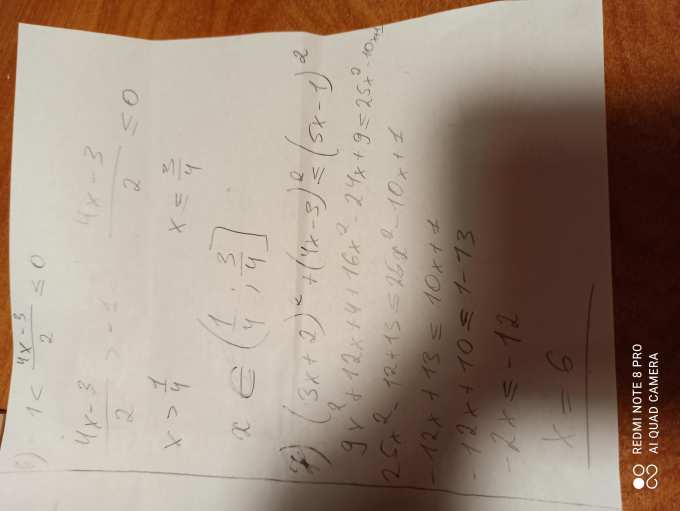 6) -1 < \frac{4x-3}{2} ≤ 0
\frac{4x-3}{2} > -1    \frac{4x-3}{2} ≤ 0
x > \frac{1}{4}    x ≤ \frac{3}{4}
x ∈ (\frac{1}{4}; \frac{3}{4}]
7) (3x+2)² + (4x-3)² ≤ (5x-1)²
9x² + 12x + 4 + 16x² - 24x + 9 ≤ 25x² - 10x+1
25x² - 12 + 13 ≤ 25x² - 10x + 1
-12x + 13 ≤ 10x + 1
-12x + 10 ≤ 1 - 13
-2x ≤ -12
x = 6
REDMI NOTE 8 PRO
AI QUAD CAMERA